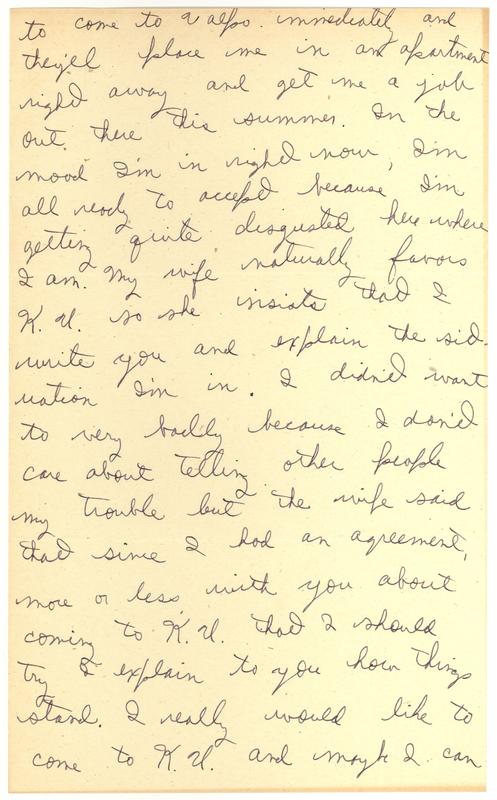 to come to Valpo. immediately and
they'll place me in an apartment
right away and get me a job
out there this summer. In the
mood I'm in right now, I'm
all ready to accept because I'm
getting quite disgusted here where
I am. My wife naturally favors
K. U. so she insists that I
write you and explain the sit-
uation I'm in. I didn't want
to very badly because I don't
care about telling other people
my trouble but the wife said
that since I had an agreement,
more or less, with you about
coming to K. U. that I should
try & explain to you how things
stand. I really would like to
come to K. U. and maybe I can